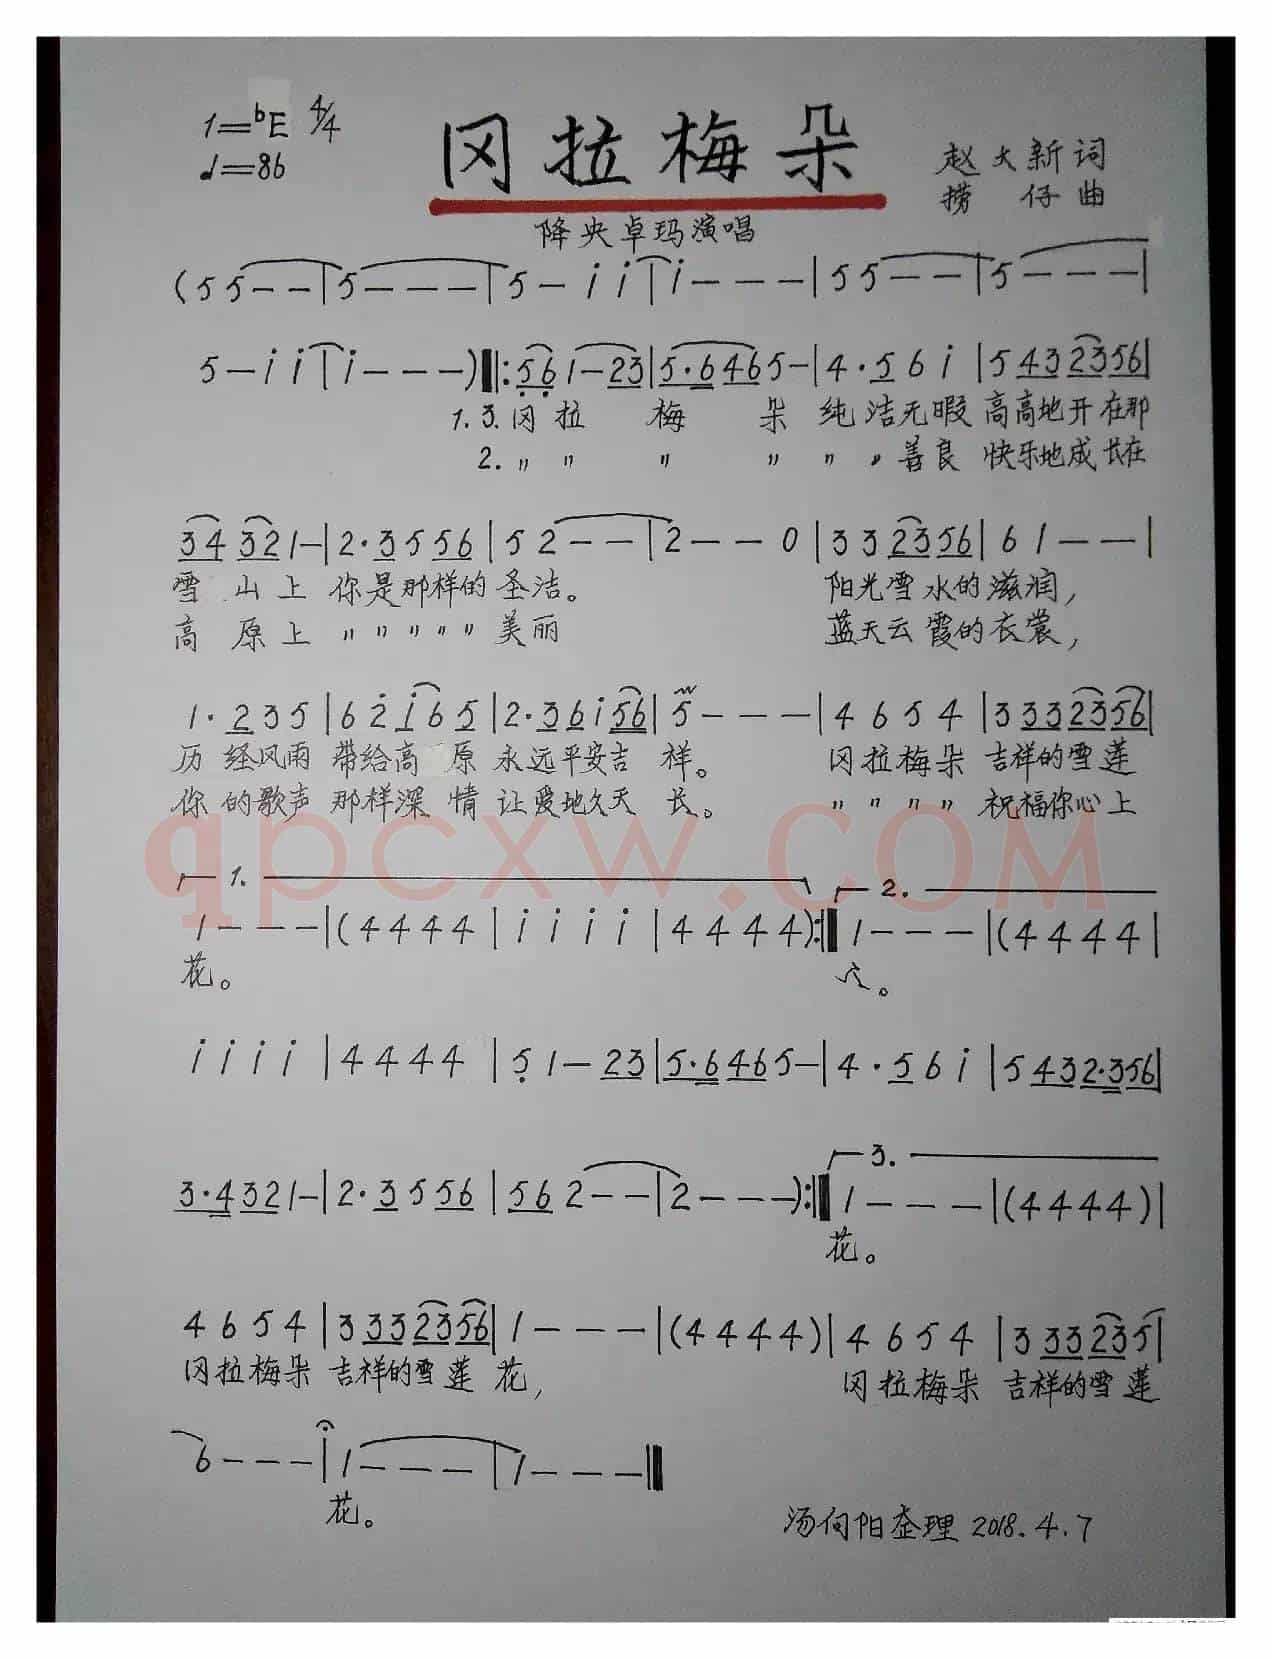 1=ᵇE 4/4
♩=86
冈拉梅朵
赵大新词
捞仔曲
降央卓玛演唱
(5 5 - - | 5 - - - | 5 - i i | i - - - | 5 5 - - | 5 - - - |
5 - i i | i - - - ) ‖: 5 6 1 - 2 3 | 5 · 6 4 6 5 - | 4 · 5 6 i | 5 4 3 2 3 5 6 |
1.3. 冈拉梅朵 纯洁无暇 高高地开在那
2. 〃 〃 〃 〃 〃 〃 善良 快乐地成长在
3 4 3 2 1 - | 2 · 3 5 5 6 | 5 2 - - | 2 - - 0 | 3 3 2 3 5 6 | 6 1 - - |
雪山上 你是那样的圣洁。 阳光雪水的滋润，
高原上 〃 〃 〃 〃 〃 美丽 蓝天云霞的衣裳，
1 · 2 3 5 | 6 2 i 6 5 | 2 · 3 6 i 5 6 | 5 - - - | 4 6 5 4 | 3 3 3 2 3 5 6 |
历经风雨 带给高原 永远平安吉祥。 冈拉梅朵 吉祥的雪莲
你的歌声 那样深情 让爱地久天长。 〃 〃 〃 〃 祝福你心上
qpcxw.COM
1. 2.
1 - - - | (4 4 4 4 | i i i i | 4 4 4 4) :‖ 1 - - - | (4 4 4 4 |
花。 。
i i i i | 4 4 4 4 | 5 1 - 2 3 | 5 · 6 4 6 5 - | 4 · 5 6 i | 5 4 3 2 · 3 5 6 |
3.
3 · 4 3 2 1 - | 2 · 3 5 5 6 | 5 6 2 - - | 2 - - - ) :‖ 1 - - - | (4 4 4 4) |
花。
4 6 5 4 | 3 3 3 2 3 5 6 | 1 - - - | (4 4 4 4) | 4 6 5 4 | 3 3 3 2 3 5 |
冈拉梅朵 吉祥的雪莲花， 冈拉梅朵 吉祥的雪莲
6 - - - | 1 - - - | 1 - - - ‖
花。
汤向阳整理 2018.4.7